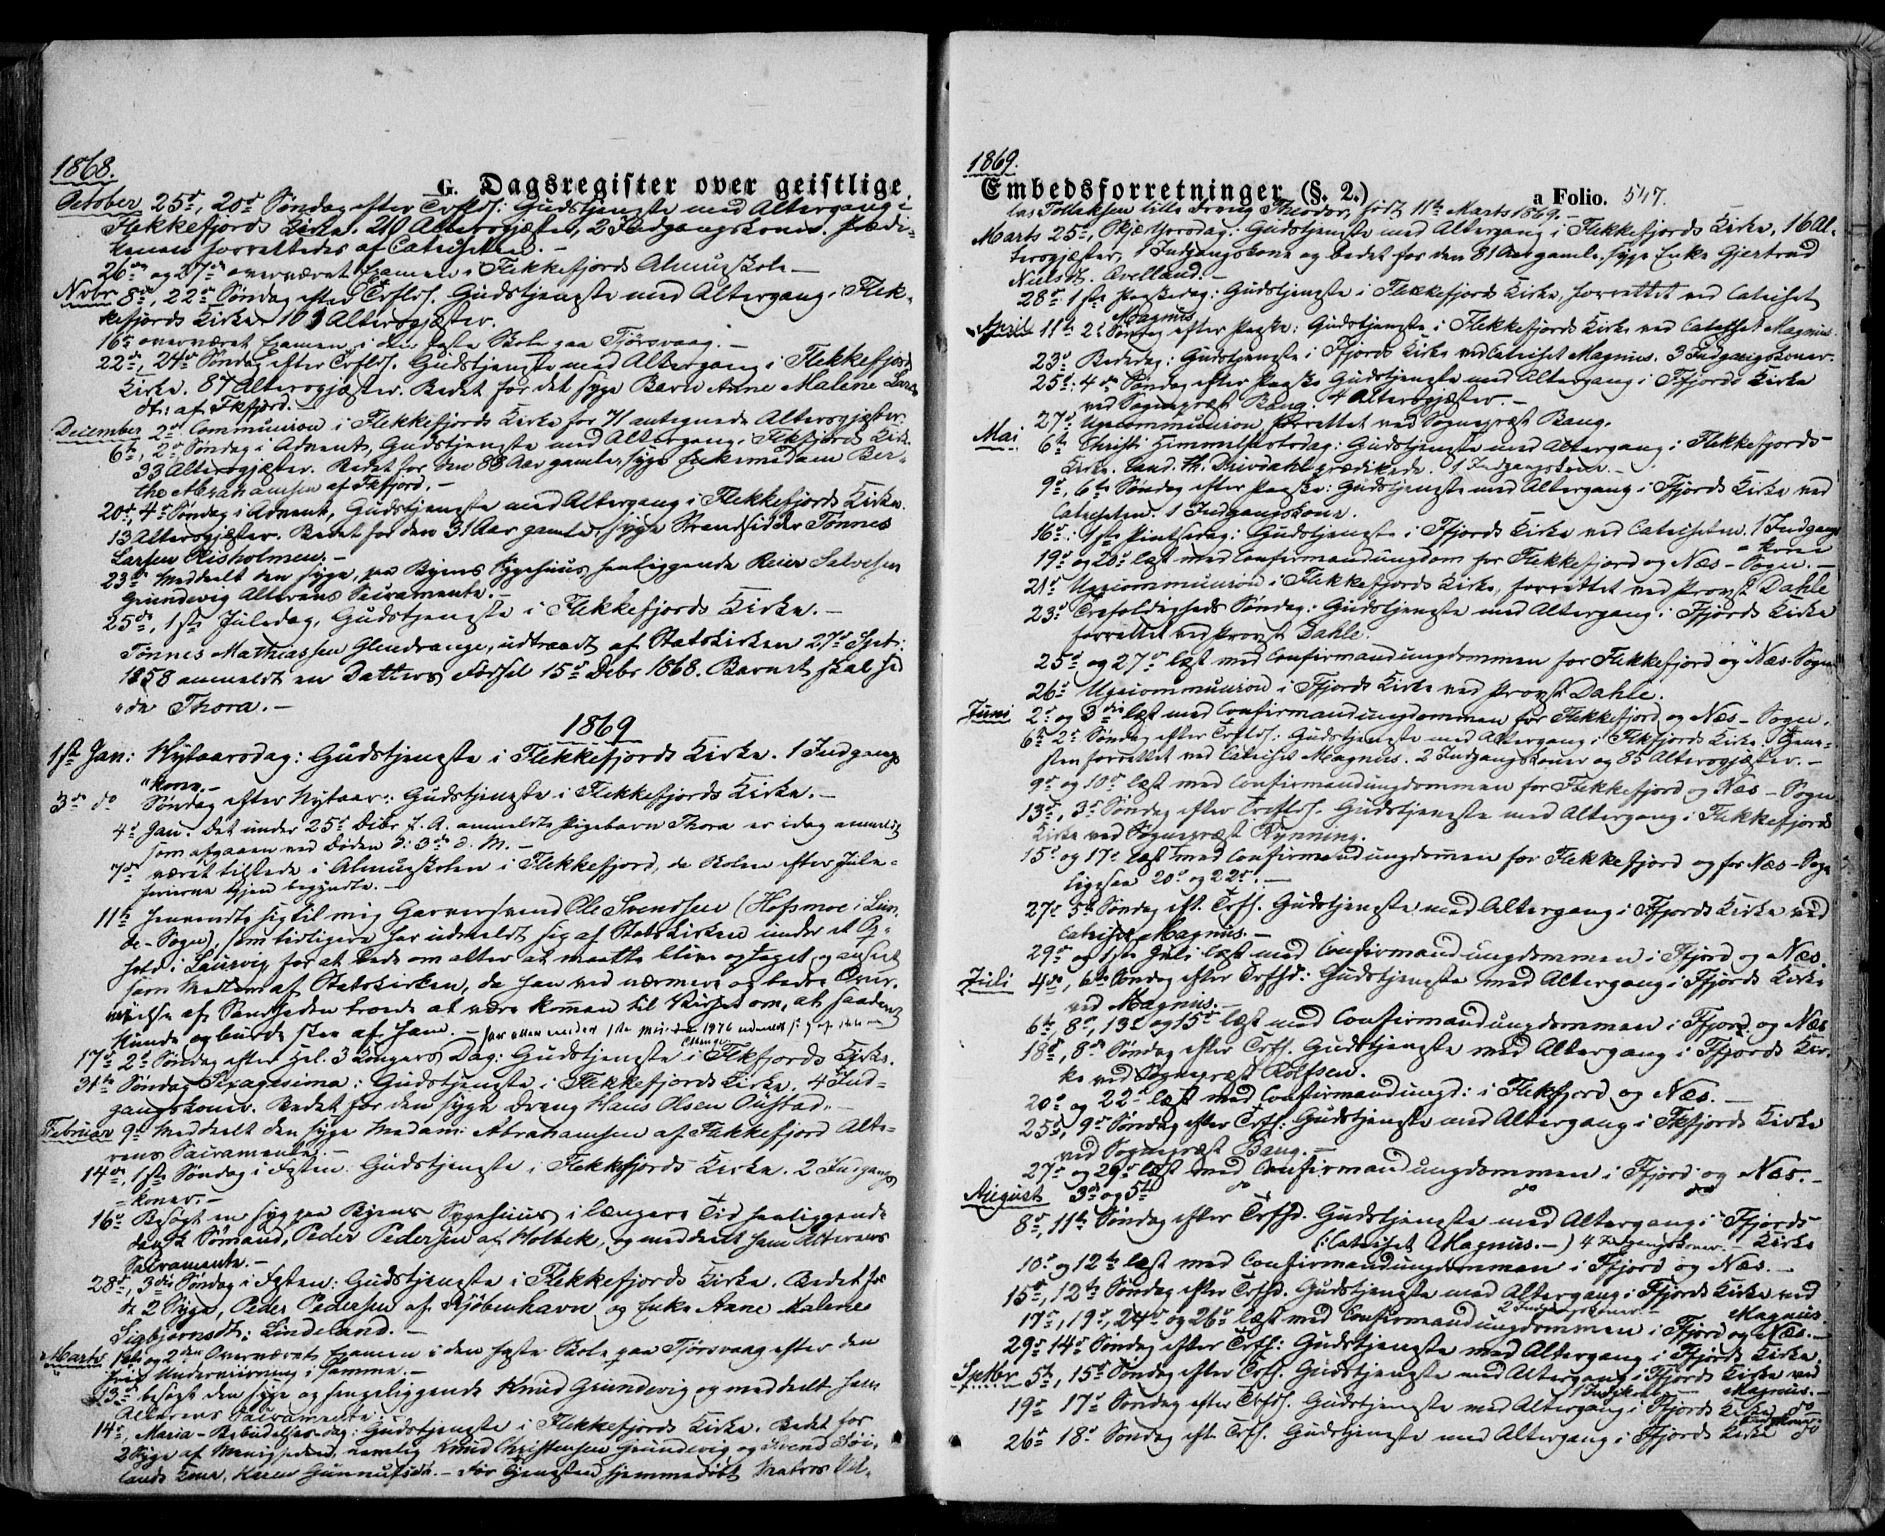 1868.
G. Dagsregister over geistlige
October 25d, 20d Søndag efter Trflds: Gudstjeneste med Altergang i
Flekkefjords Kirke. 210 Altersgjester, 2 Indgangskoner. Prædi-
kenen forrettedes af Catecheten. –
26de og 27de overværet Examen i Flekkefjords Almueskole –
Novbr 8d, 22d Søndag efter Trflds. Gudstjeneste med Altergang i Flek-
kefjords Kirke. Altersgjester.
16d overværet Examen i den faste Skole paa Tjørsvaag. –
22d, 24d Søndag efter Trflds. Gudstjeneste med Altergang i Flekkefjords
Kirke. 87 Altersgjester. Bedet for det syge Barn Anne Malene Lars
dtr: af Fkfjord. –
December 2d Communion i Flekkefjords Kirke for 71 antegnede Altersgjester.
6te, 2d Søndag i Advent, Gudstjeneste med Altergang i Flkfjords Kirke
33 Altersgjester. Bedet for den 88 Aar gamle, syge Enkemadam Ber-
the Abrahamsen af Fkfjord. –
20d, 4d Søndag i Advent, Gudstjeneste med Altergang i Flekkefjords Kirke.
13 Altersgjester. Bedet for den 31 Aar gamle syge Strandsidder Tønnes
Larsen Risholmen. –
23d Meddelt den syge, paa Byens Sygehuus henliggende Reier Salvesen
Grundevig Alterens Sacramente. –
25de, 1ste Juledag, Gudstjeneste i Flekkefjords Kirke. –
Tønnes Mathiassen Glendrange, udtraadt af Statskirken 27d Spt:
1858 anmeldt en Datters Fødsel 15d Debr 1868. Barnet skal hed
"de Thora. –
1869
1ste Jan: Nytaarsdag: Gudstjeneste i Flekkefjords Kirke. 1 Indgangs
"kone. –
3de do Søndag efter Nytaar: Gudstjeneste i Flekkefjords Kirke. –
4d Jan. Det under 25d Debr f. A. anmeldte Pigebarn Thora er idag anmeldt
som afgaaen ved Døden d: 3de d. M. –
7de været tilstede i Almueskolen i Flekkefjord, da Skolen efter Jule-
ferierne igjen begyndte. –
11te henvendte sig til mig Garversvend Ole Svendsen (Hofsmoe i Lun-
de-Sogn), som tidligere har udmeldt sig af Statskirken under et Op-
hold i Laurvig for at bede om atter at maatte blive optaget og anseet
som Medlem af Statskirken, da han ved nærmere og bedre Over-
veielse af Sandheden troede at være kommen til Kundskab om, at saadant
kunde og burde skee af ham. –
17d 2d Søndag efter Hel. 3 Kongers Dag: Gudstjeneste i Flkfjords Kirke.
31te Søndag Sexagesima: Gudstjeneste i Flekkefjords Kirke. 4 Ind-
gangskoner. Bedet for den syge Dreng Hans Olsen Øustad. –
Februar 9d Meddelt den syge Madam: Abrahamsen af Flekkefjord Alte-
rens Sacramente. –
14de, 1ste Søndag i Fasten. Gudstjeneste i Flekkefjords Kirke. 2 Indgangs
=koner. –
16d Besøgt en syg paa Byens Sygehuus i længere Tid henliggende
dansk Sømand, Peder Pedersen af Holbek, og meddeelt ham Alterens
Sacramente. –
28d, 3die Søndag i Fasten: Gudstjeneste i Flekkefjords Kirke. Bedet for
de 2 Syge, Peder Pedersen af Kjøbenhavn og Enke Anne Malene
Sigbjørnsdtr: Lindeland. –
Marts 1ste og 2den Overværet Examen i den faste Skole paa Tjørsvaag efter den
frie Underviisning i samme. –
13d besøgt den syge og sengeliggende Knud Grundevig og meddeelt ham
Alterens Sacramente. –
14d, Maria-Bebudelses-dag: Gudstjeneste i Flekkefjords Kirke. Bedet for
2 Syge af Menigheden, nemlig Knud Christensen Grundevig og Svend Føi-
lands Kone, Karen Gunnufsdtr. – Før Tjenesten hjemmedøbt Matros Nil-
1869.
Embedsforretninger (§. 2.) a Folio. 547.
las Tollaksen lille Dreng Theodor, født 11te Marts 1869. –
Marts 25d, Skjærthorsdag: Gudstjeneste med Altergang i Flekkefjords Kirke, 16 Al-
tersgjester, 1 Indgangskone og bedet for den 81 Aar gamle, syge Enke Gjertrud
Nielsdtr. Ovelland. –
28d 1ste Paaskedag: Gudstjeneste i Flekkefjords Kirke, forrettet ved Catechet
Magnus
April 11te 2d Søndag efter Paaske: Gudstjeneste i Flekkefjords Kirke ved Catechet Magnus.
23d Bededag: Gudstjeneste i Ffjords Kirke ved Catechet Magnus. 3 Indgangskoner.
25d: 4de Søndag efter Paaske Gudstjeneste med Altergang i Ffjords Kirke
ved Sognepræst Bang. 4 Altersgjester. –
27d Ugecommunion, forrettet ved Sognepræst Bang.
Mai 6te Christi Himmelfartsdag: Gudstjeneste med Altergang i Flekkefjords
Kirke. Cand. th. Drivdahl prædikede. 1 Indgangskone. –
9d, 6te Søndag efter Paaske: Gudstjeneste med Altergang i Ffjords Kirke ved
Catecheten. 1 Indgangskone.
16d: 1ste Pintsedag: Gudstjeneste i Ffjords Kirke ved Catecheten. 1 Indgangs
=kone
19d og 20d læst med Confirmandungdom for Flekkefjord og Næs-Sogn. –
21d Ugecommunion i Flekkefjords Kirke, forrettet ved Provst Dahle
23d Trefoldigheds Søndag: Gudstjeneste med Altergang i Ffjords Kirke
forrettet ved Provst Dahle.
25d og 27de læst med Confirmandungdommen for Flekkefjord og Næs-Sogn
26d Ugecommunion i Ffjords Kirke ved Provst Dahle.
Juni 2d og 3die læst med Confirmandungdommen for Flekkefjord og Næs-Sogn.
6te 2d Søndag efter Trflds: Gudstjeneste med Altergang i Flkfjords Kirke. Tjene-
sten forrettet ved Catechet Magnus. 2 Indgangskoner og 85 Altersgjester. –
9d og 10de læst med Confirmandungdommen for Flekkefjord og Næs-Sogn
13d, 3d Søndag efter Trflds. Gudstjeneste med Altergang i Flekkefjords
Kirke ved Sognepræst Rynning.
15d og 17d læst med Confirmandungdommen for Flekkefjord og for Næs-Sogn
ligesaa 20d og 22d. –
27d 5te Søndag eft. Trfs. Gudstjeneste med Altergang i Ffjords Kirke ved
Catechet Magnus. –
29d og 1ste Juli læst med Confirmandungdommen i Ffjord og Næs.
Juli 4de, 6te Søndag efter Trfhd: Gudstjeneste med Altergang i Ffjords Kirke
ved Magnus. –
6te, 8d, 13d og 15de læst med Confirmandungdommen i Ffjord og Næs
18d, 8de Søndag efter Trfs. Gudstjeneste med Altergang i Ffjords Kir-
ke ved Sognepræst Rolfsen.
20d og 22d læst med Confirmandungd: i Flekkefjord og Næs. –
25d, 9d Søndag efter Trfs: Gudstjeneste med Altergang i Fkfjords Kirke
ved Sognepræst Bang. –
27d og 29d læst med Confirmandungdommen i Ffjord og Næs. –
August 3de og 5te do do do
8d, 11te Søndag efter Trfhd. Gudstjeneste med Altergang i Ffjords
(: Catechet Magnus. –) 4 Indgangskoner. – Kirke
10d og 12te læst med Confirmandungdommen i Ffjord og Næs. –
15d, 12te Søndag efter Trfhd. Gudstjeneste med Altergang i Ffjords Kirke ved
2 Indgangskoner. – Magnus.
17d, 19d, 24d og 26d læst med Confirmandungdommen i Ffjord og Næs. –
29d 14d Søndag efter Trfs: Gudstjeneste med Altergang i Ffjords Kirke.
Septbr 5te, 15d Søndag efter Trfs. Gudstjeneste med Altergang i Ffjords Kirke ved
1 Indgkone – Magnus. –
19d 17d Søndag efter Trflds. Gudstjeneste med Altergang i Ffjords Kirke do
26d 18d Søndag eft. Trfs. Gudstjeneste med Altergang i Ffjords Kirke do